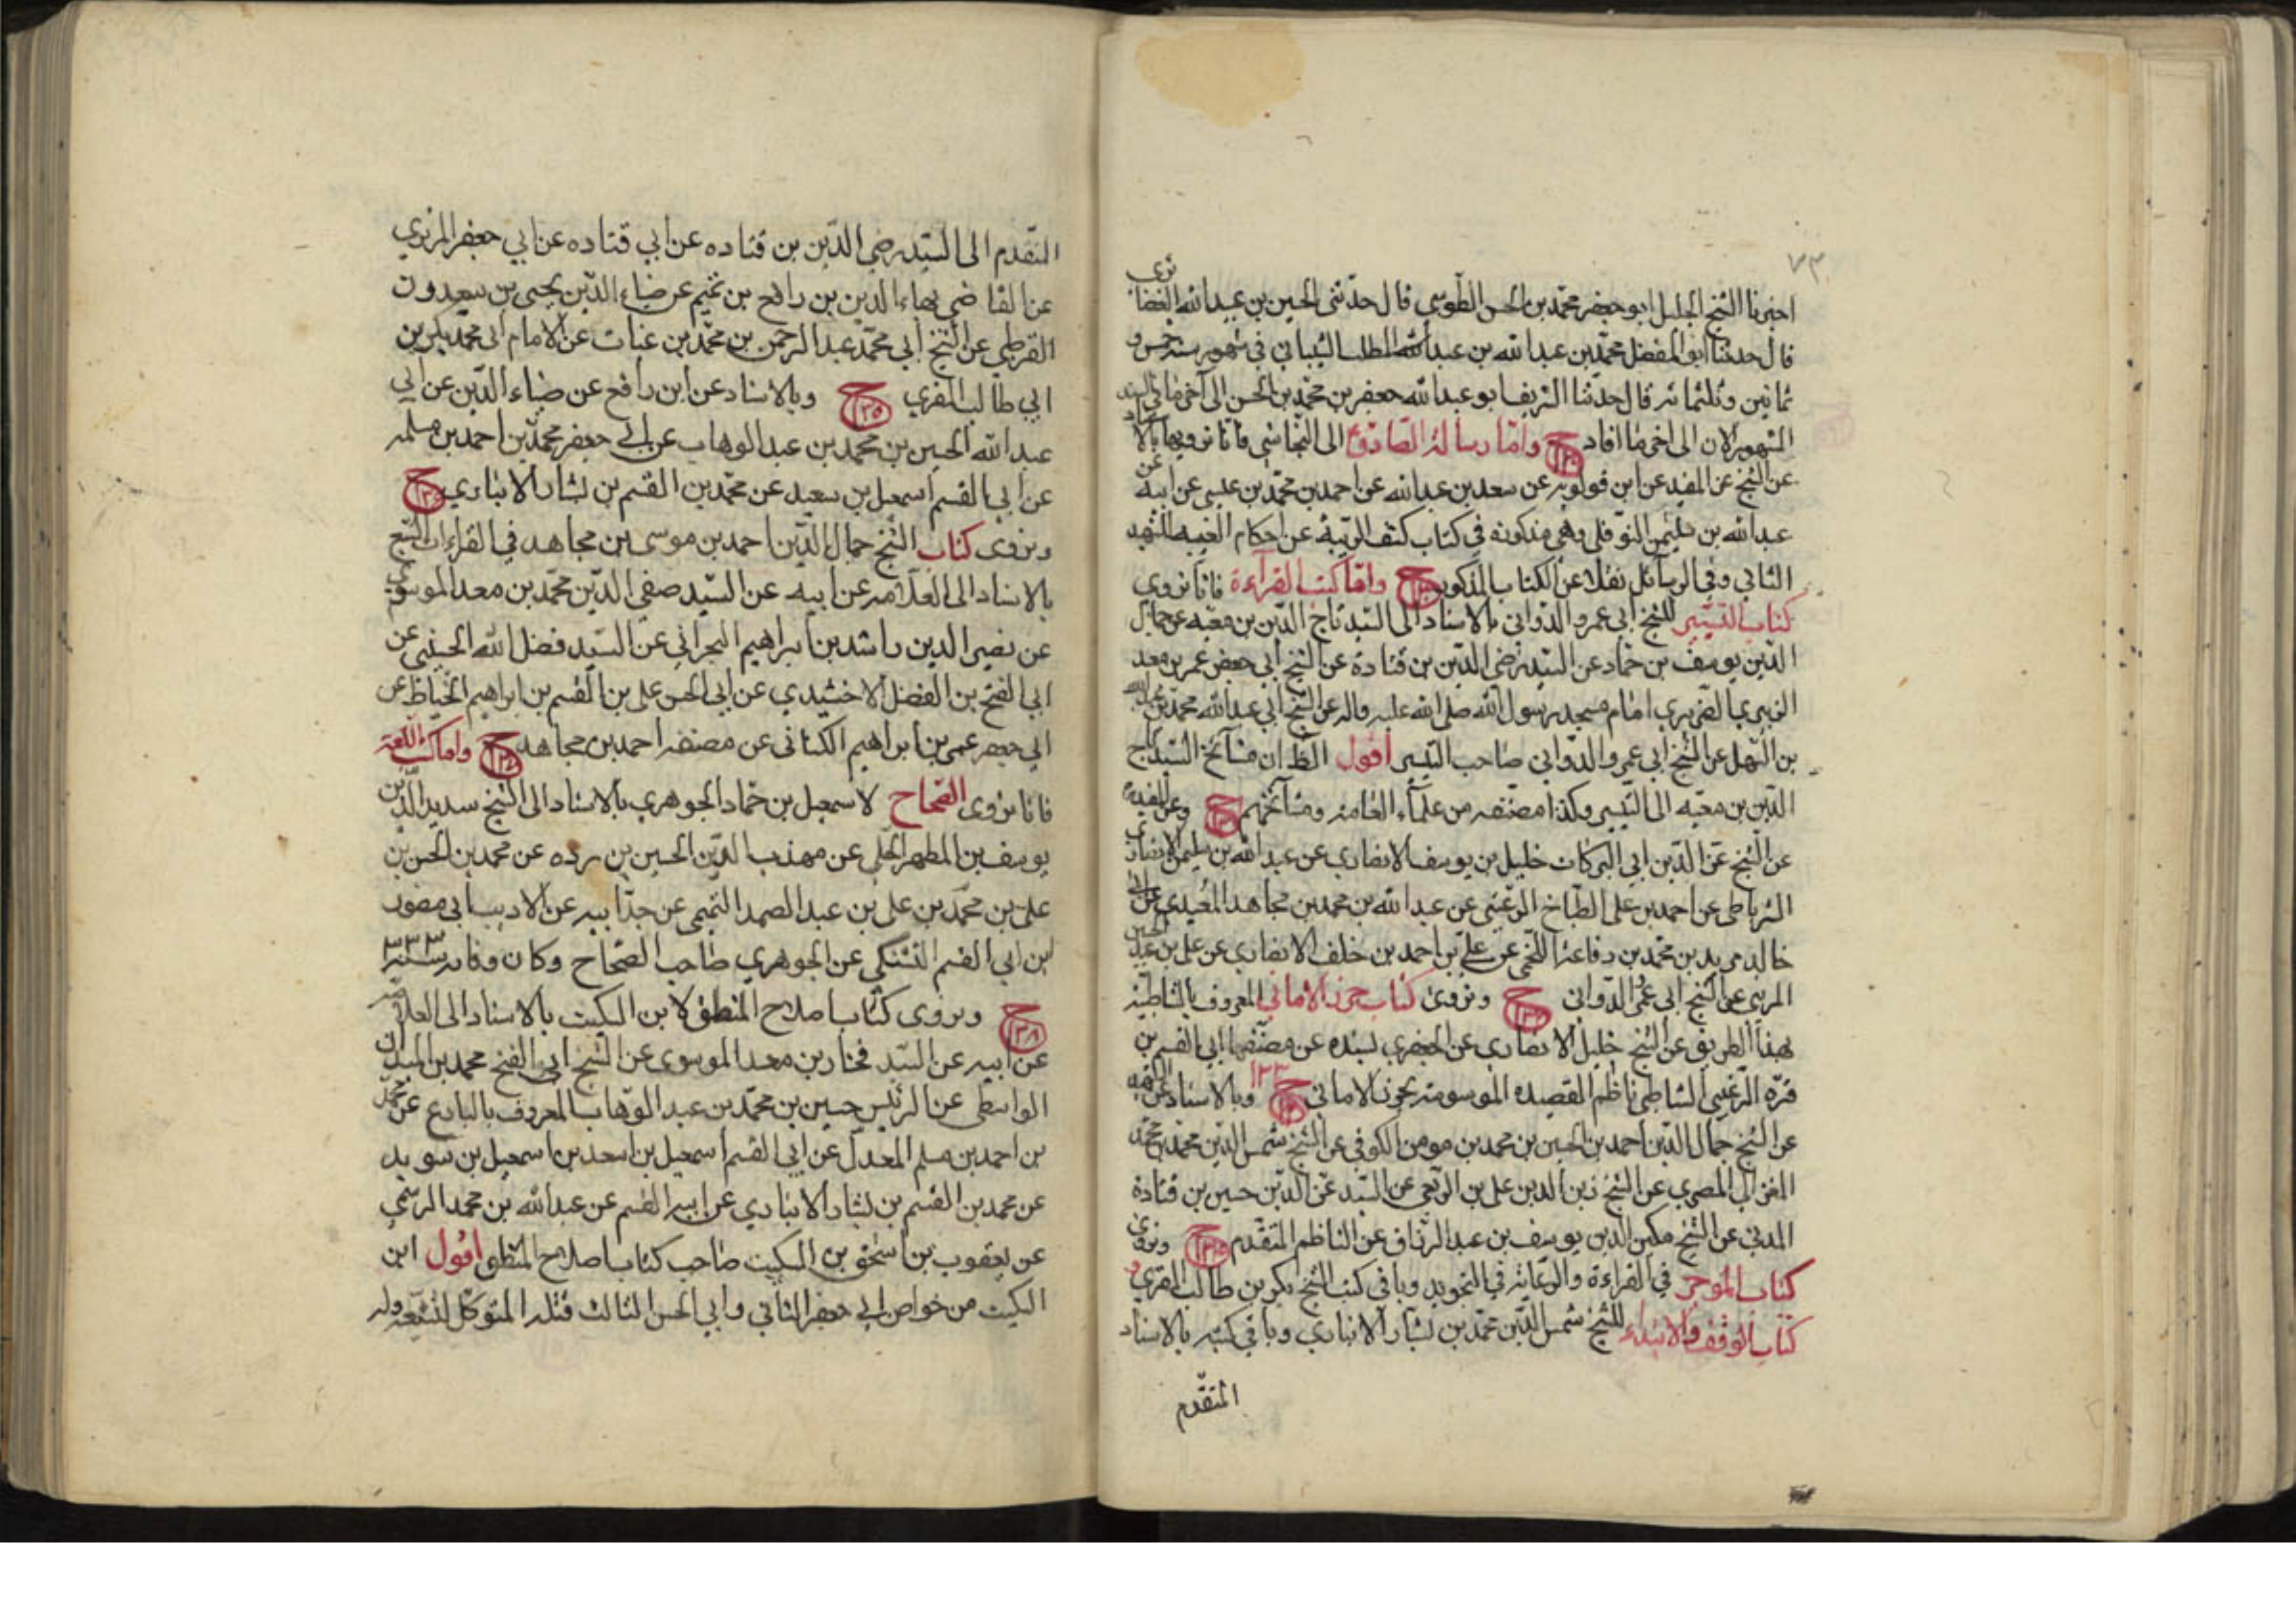 ٧٣
اخبرنا الشيخ الجليل ابو جعفر محمد بن الحسن الطوسي قال حدثني الحسين بن عبيد الله الغضائري
قال حدثنا ابو المفضل محمد بن عبد الله بن عبد المطلب الشيباني في شهور سنة خمس و
ثمانين وثلثمائة قال حدثنا الشريف ابو عبد الله جعفر بن محمد بن الحسن الى آخر ما في السند
المشهور الآن الى آخر ما افاد ح واما رسالة الصادق ع الى النجاشي فانا نرويها بالاسناد
عن الشيخ عن المفيد عن ابن قولويه عن سعد بن عبد الله عن احمد بن محمد بن عيسى عن ابيه عن
عبد الله بن سليمن النوفلي وهي مذكورة في كتاب كشف الريبة عن احكام الغيبة للشهيد
الثاني وفي الوسائل نقلا عن الكتاب المذكور ح واما كتب القرآءة فانا نروي
كتاب التيسير للشيخ ابي عمرو الدواني بالاسناد الى السيد تاج الدين بن معيه عن جمال
الدين يوسف بن حماد عن السيد رضي الدين بن قتادة عن الشيخ ابي حفص عمر بن معد
الزبيري الضريري امام مسجد رسول الله صلى الله عليه واله عن الشيخ ابي عبد الله محمد بن
بن النهل عن الشيخ ابي عمرو الدواني صاحب التيسير اقول الظ ان مشآئخ السيد تاج
الدين بن معيه الى التيسير وكذا مصنفه من علمآء العامة ومشآئخهم ح
عن الشيخ عز الدين ابي البركات خليل بن يوسف الانصاري عن عبد الله بن سليمن الانصاري
الشرياطي عن احمد بن علي الطباخ الرعيني عن عبد الله بن محمد بن مجاهد العبدي عن ابي
خالد مريد بن محمد بن رفاعة اللخمي عن علي بن احمد بن خلف الانصاري عن علي بن
المريني عن الشيخ ابي عمرو الدواني ح ونروي كتاب حرز الاماني المعروف بالشاطبية
بهذا الطريق عن الشيخ خليل الانصاري عن الجعبري بسنده عن مصنفها ابي القسم بن
فره الرعيني الشاطبي ناظم القصيده الموسومة بحرز الاماني ح ١٣٣ وبالاسناد
عن الشيخ جمال الدين احمد بن الحسين بن محمد بن مومن الكوفي عن الشيخ شمس الدين محمد بن محمد
الغزالي المصري عن الشيخ زين الدين علي بن عن السيد عز الدين حسين بن قتادة
المدني عن الشيخ مكين الدين يوسف بن عبد الرزاق عن الناظم المتقدم ح ونروي
كتاب الموجز في القراءة والرعاية في التجويد وباقي كتب الشيخ بكر بن طالب المقري و
كتاب الوقف والابتداء للشيخ شمس الدين محمد بن بشار الانباري وباقي كتبه بالاسناد
المتقدم
المتقدم الى السيد رضي الدين بن قتاده عن ابي قتاده عن ابي جعفر المزبري
عن القاضي بهاء الدين بن رافع بن تميم عن ضياء الدين يحيى بن سعدون
القرطبي عن الشيخ ابي محمد عبد الرحمن بن محمد بن عتاب عن الامام ابي محمد بكر بن
ابي طالب المقري ح ١٣٥ وبالاسناد عن ابن رافع عن ضياء الدين عن ابي
عبد الله الحسين بن محمد بن عبد الوهاب عن ابي جعفر محمد بن احمد بن مسلمه
عن ابي القسم اسمعيل بن سعيد عن محمد بن القسم بن بشار الانباري ح ١٣٦
ونروي كتاب الشيخ جمال الدين احمد بن موسى بن مجاهد في القراءات السبع
بالاسناد الى العلامه عن ابيه عن السيد صفي الدين محمد بن معد الموسوي
عن نصير الدين راشد بن ابراهيم البحراني عن السيد فضل الله الحسيني عن
ابي الفتح بن الفضل الاخشيدي عن ابي الحسن علي بن القسم بن ابراهيم الخياط عن
ابي حفص عمر بن ابراهيم الكتاني عن مصنفه احمد بن مجاهد ح ١٣٧ واما كتب اللغة
فانا نروي الصحاح لاسمعيل بن حماد الجوهري بالاسناد الى الشيخ سديد الدين
يوسف بن المطهر الحلي عن مهذب الدين الحسين بن رده عن محمد بن الحسن بن
علي بن محمد بن علي بن عبد الصمد التميمي عن جد ابيه عن الاديب ابي منصور
بن ابي القسم عن الجوهري صاحب الصحاح وكان وفاته سنة ٣٣٣
ح ١٣٨ ونروي كتاب اصلاح المنطق لابن السكيت بالاسناد الى العلامه
عن ابيه عن السيد فخار بن معد الموسوي عن الشيخ ابي الفتح محمد بن
الواسطي عن الرئيس حسين بن محمد بن عبد الوهاب المعروف بالبارع عن محمد
بن احمد بن مسلم المعدل عن ابي القسم اسمعيل بن اسعد بن اسمعيل بن سويد
عن محمد بن القسم بن بشار الانباري عن ابيه القسم عن عبد الله بن محمد الرستمي
عن يعقوب بن اسحق بن السكيت صاحب كتاب اصلاح المنطق اقول ابن
السكيت من خواص ابي جعفر الثاني وابي الحسن الثالث قتله المتوكل لتشيعه وله